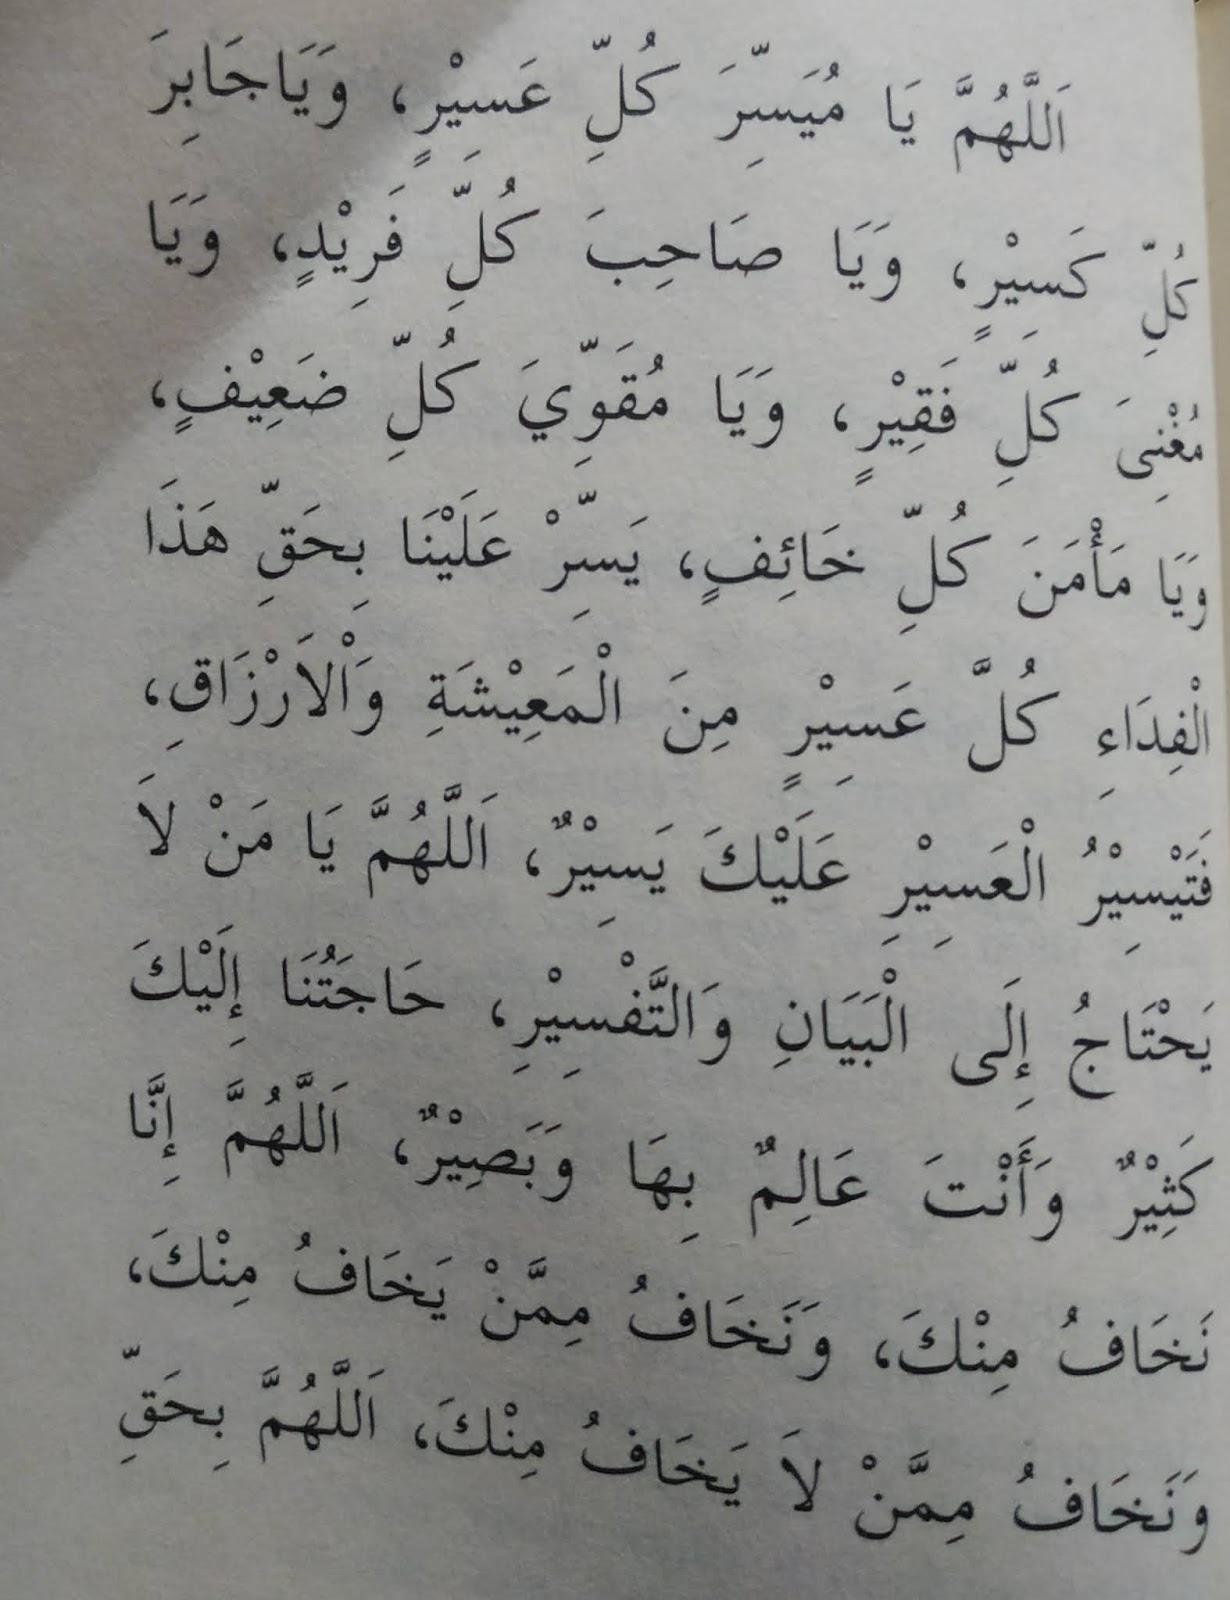 اَللَّهُمَّ يَا مُيَسِّرَ كُلِّ عَسِيْرٍ، وَيَاجَابِرَ
كُلِّ كَسِيْرٍ، وَيَا صَاحِبَ كُلِّ فَرِيْدٍ، وَيَا
مُغْنِىَ كُلِّ فَقِيْرٍ، وَيَا مُقَوِّيَ كُلِّ ضَعِيْفٍ،
وَيَا مَأْمَنَ كُلِّ خَائِفٍ، يَسِّرْ عَلَيْنَا بِحَقِّ هَذَا
الْفِدَاءِ كُلَّ عَسِيْرٍ مِنَ الْمَعِيْشَةِ وَاْلاَرْزَاقِ،
فَتَيْسِيْرُ الْعَسِيْرِ عَلَيْكَ يَسِيْرٌ، اَللَّهُمَّ يَا مَنْ لاَ
يَحْتَاجُ إِلَى الْبَيَانِ وَالتَّفْسِيْرِ، حَاجَتُنَا إِلَيْكَ
كَثِيْرٌ وَأَنْتَ عَالِمٌ بِهَا وَبَصِيْرٌ، اَللَّهُمَّ إِنَّا
نَخَافُ مِنْكَ، وَنَخَافُ مِمَّنْ يَخَافُ مِنْكَ،
وَنَخَافُ مِمَّنْ لاَ يَخَافُ مِنْكَ، اَللَّهُمَّ بِحَقِّ